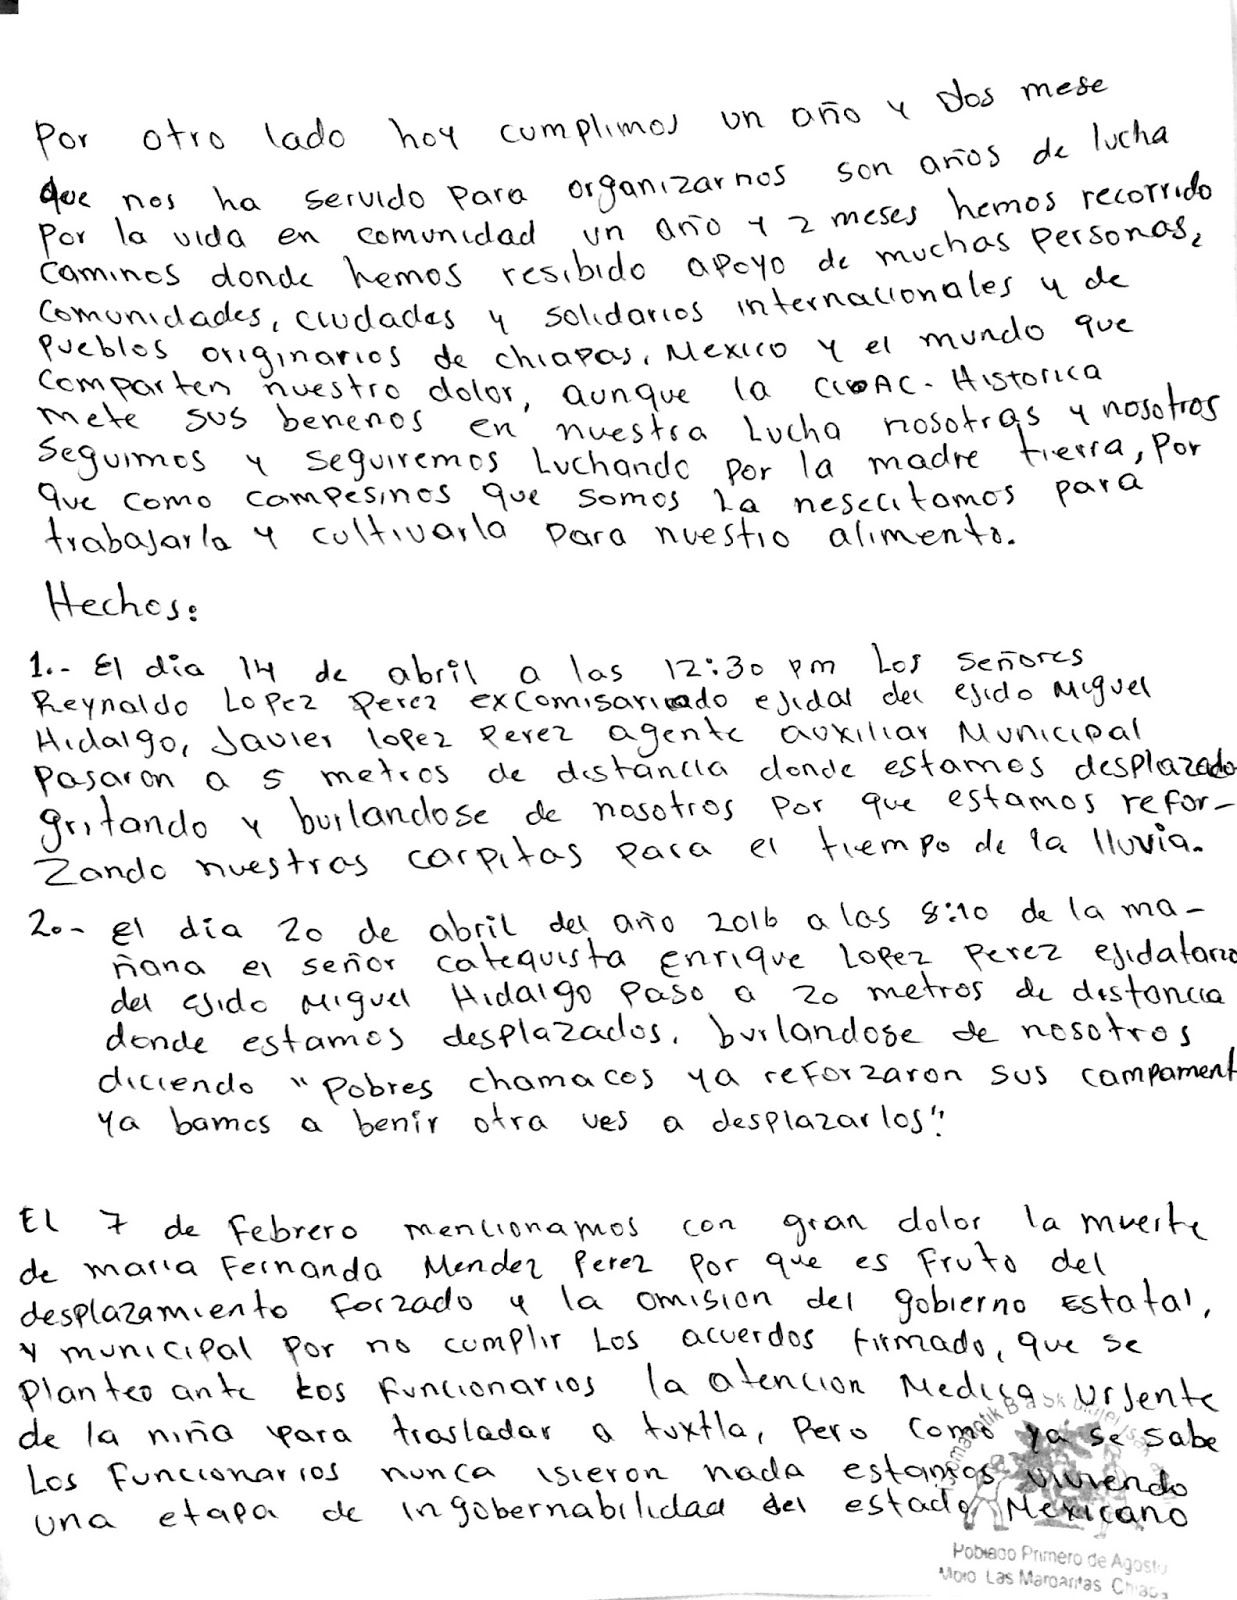 Por otro lado hoy cumplimos un año y dos mese
que nos ha servido para organizarnos son años de lucha
por la vida en comunidad un año y 2 meses hemos recorrido
caminos donde hemos resibido apoyo de muchas personas,
comunidades, ciudades y solidarios internacionales y de
pueblos originarios de chiapas, Mexico y el mundo que
comparten nuestro dolor, aunque la CIOAC-Historica
mete sus benenos en nuestra Lucha nosotras y nosotros
seguimos y seguiremos Luchando por la madre tierra, por
que como campesinos que somos La nesecitamos para
trabajarla y cultivarla para nuestro alimento.
Hechos:
1.- El dia 14 de abril a las 12:30 pm Los señores
Reynaldo Lopez Perez excomisariado ejidal del ejido Miguel
Hidalgo, Javier lopez Perez agente auxiliar Municipal
pasaron a 5 metros de distancia donde estamos desplazado
gritando y burlandose de nosotros por que estamos refor-
zando nuestras carpitas para el tiempo de la lluvia.
2.- el dia 20 de abril del año 2016 a las 8:10 de la ma-
ñana el señor catequista Enrique Lopez Perez ejidatario
del ejido Miguel Hidalgo paso a 20 metros de distancia
donde estamos desplazados, burlandose de nosotros
diciendo "pobres chamacos ya reforzaron sus campament
ya bamos a benir otra ves a desplazarlos".
El 7 de Febrero mencionamos con gran dolor la muerte
de maria Fernanda Mendez Perez por que es Fruto del
desplazamiento Forzado y la omision del gobierno Estatal,
y municipal por no cumplir Los acuerdos firmado, que se
planteo ante Los Funcionarios la atencion Medica urjente
de la niña para trasladar a tuxtla, pero como ya se sabe
Los Funcionarios nunca isieron nada estamos viviendo
una etapa de ingobernabilidad del estado Mexicano
Poblado Primero de Agosto
Mpio Las Margaritas Chiapas